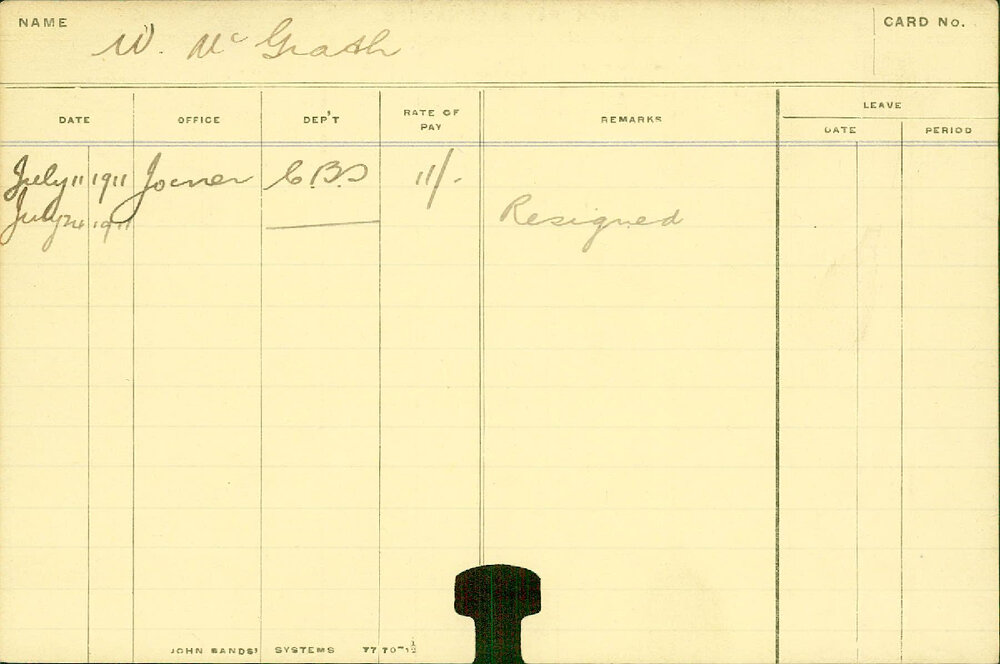 NAME W. McGrath CARD No.
LEAVE
DATE OFFICE DEP'T RATE OF PAY REMARKS DATE PERIOD
July 11 1911 Joiner C.B.S 11/-
July 24 1911 Resigned
JOHN SANDS' SYSTEMS